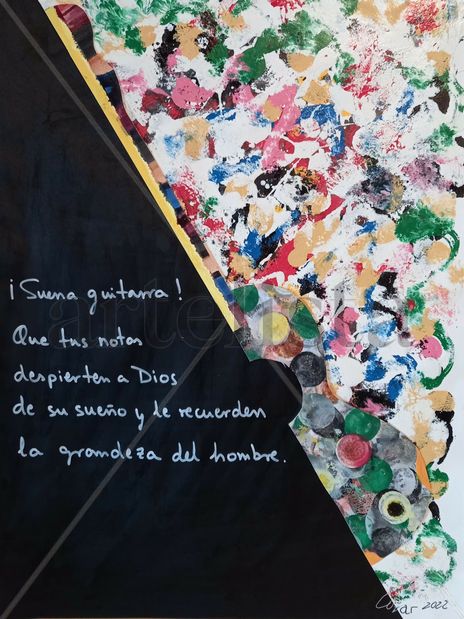 ¡Suena guitarra!
Que tus notas
despierten a Dios
de su sueño y le recuerden
la grandeza del hombre.
artelista
2022